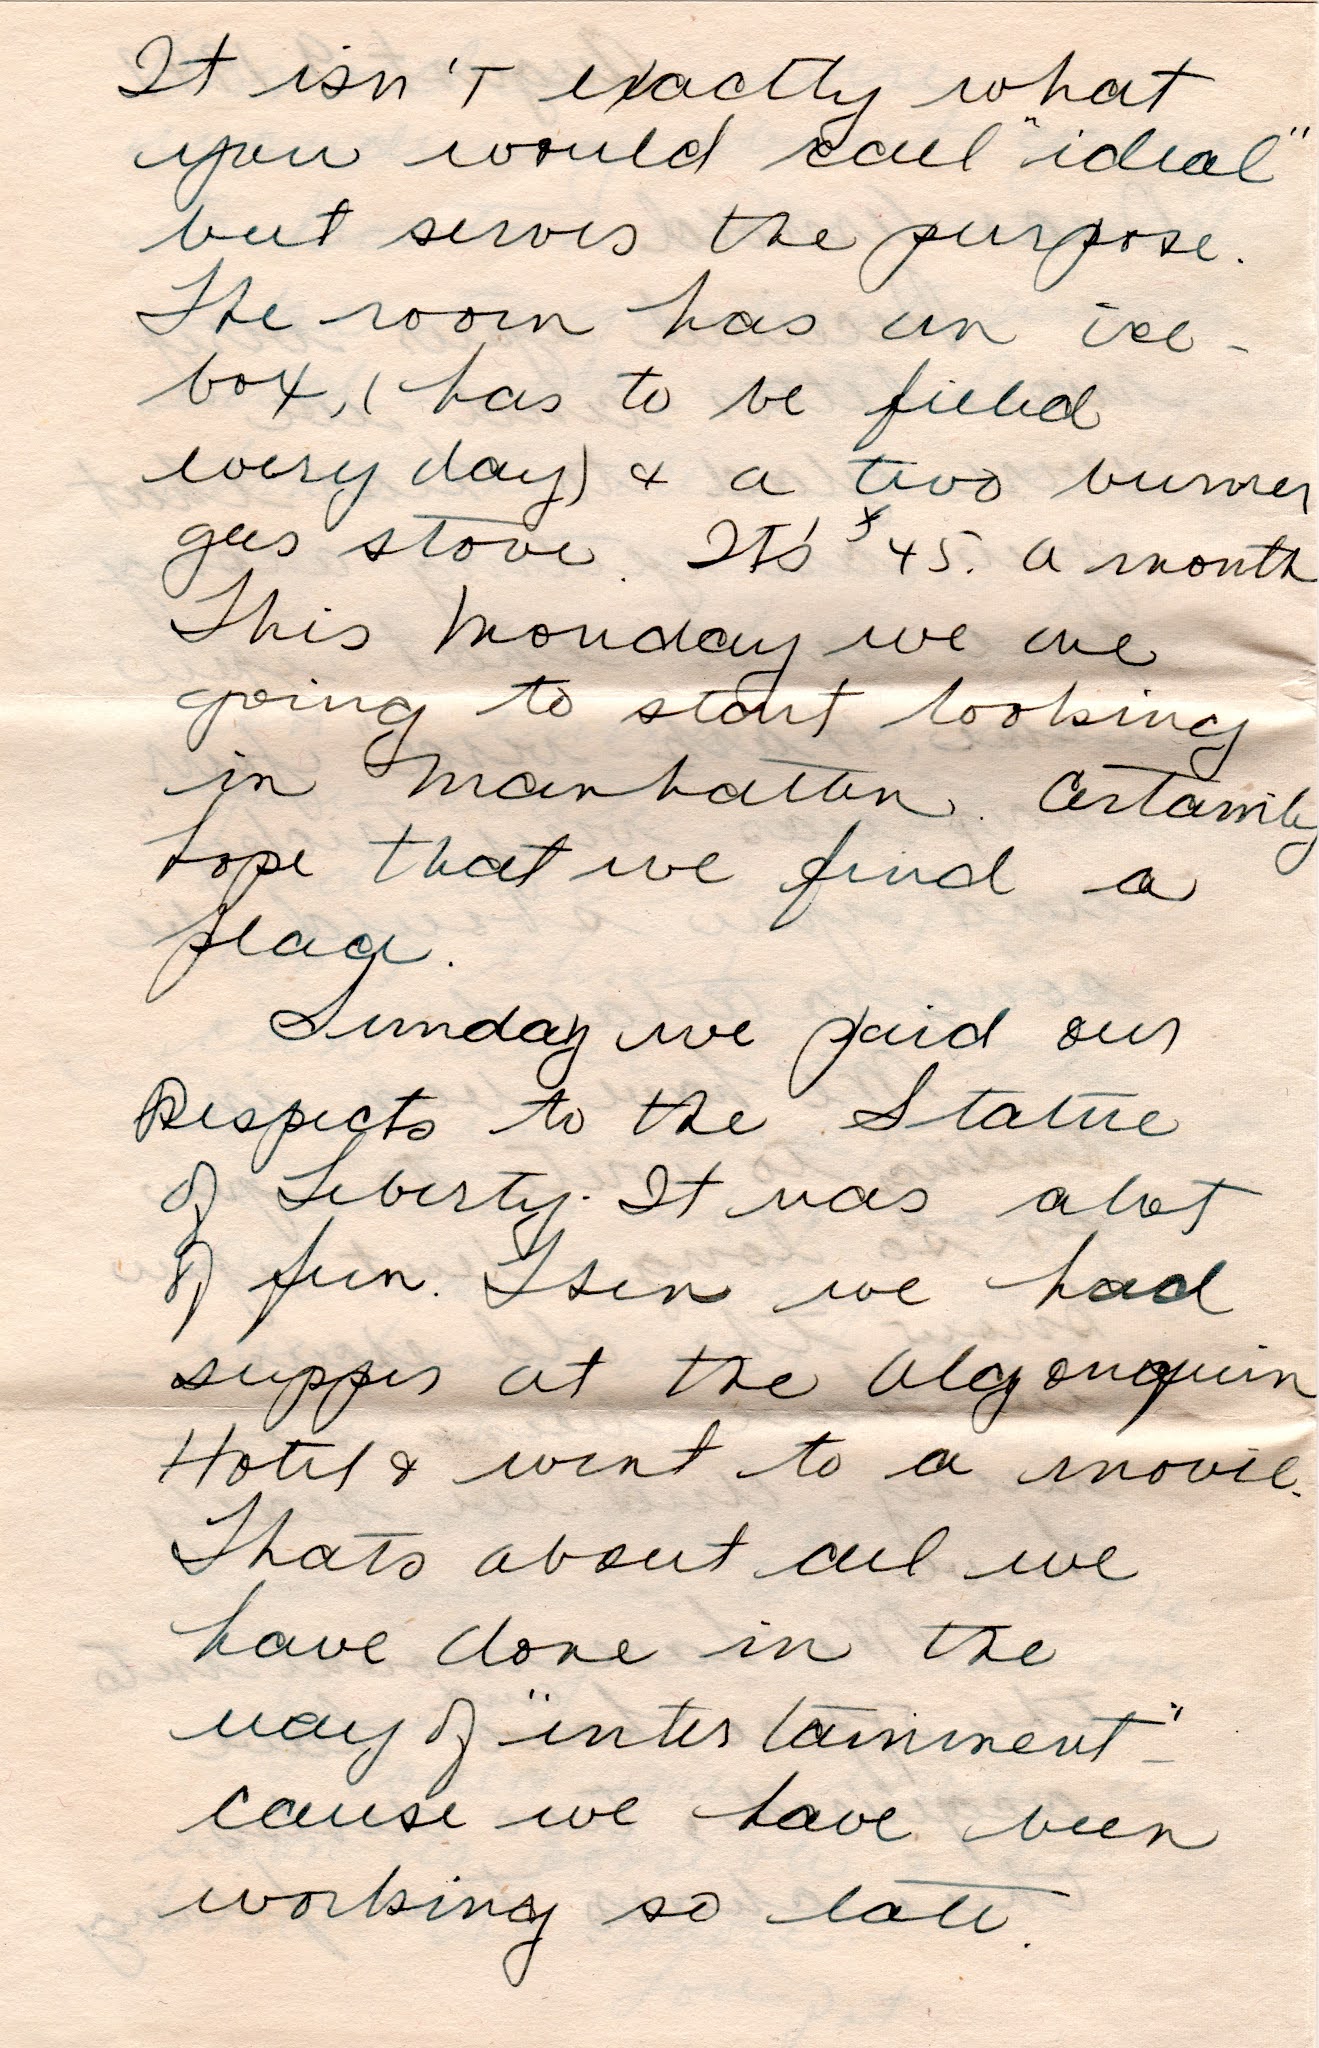 It isn't exactly what
you would call "ideal"
but serves the purpose.
The room has an ice-
box, (has to be filled
every day) & a two burner
gas stove. It's $45. a month
This Monday we are
going to start looking
in Manhatten. Certainly
hope that we find a
place.
Sunday we paid our
Respects to the Statue
of Liberty. It was alot
of fun. Then we had
supper at the Algonquin
Hotel & went to a movie.
Thats about all we
have done in the
way of "intertainment" -
cause we have been
working so late.